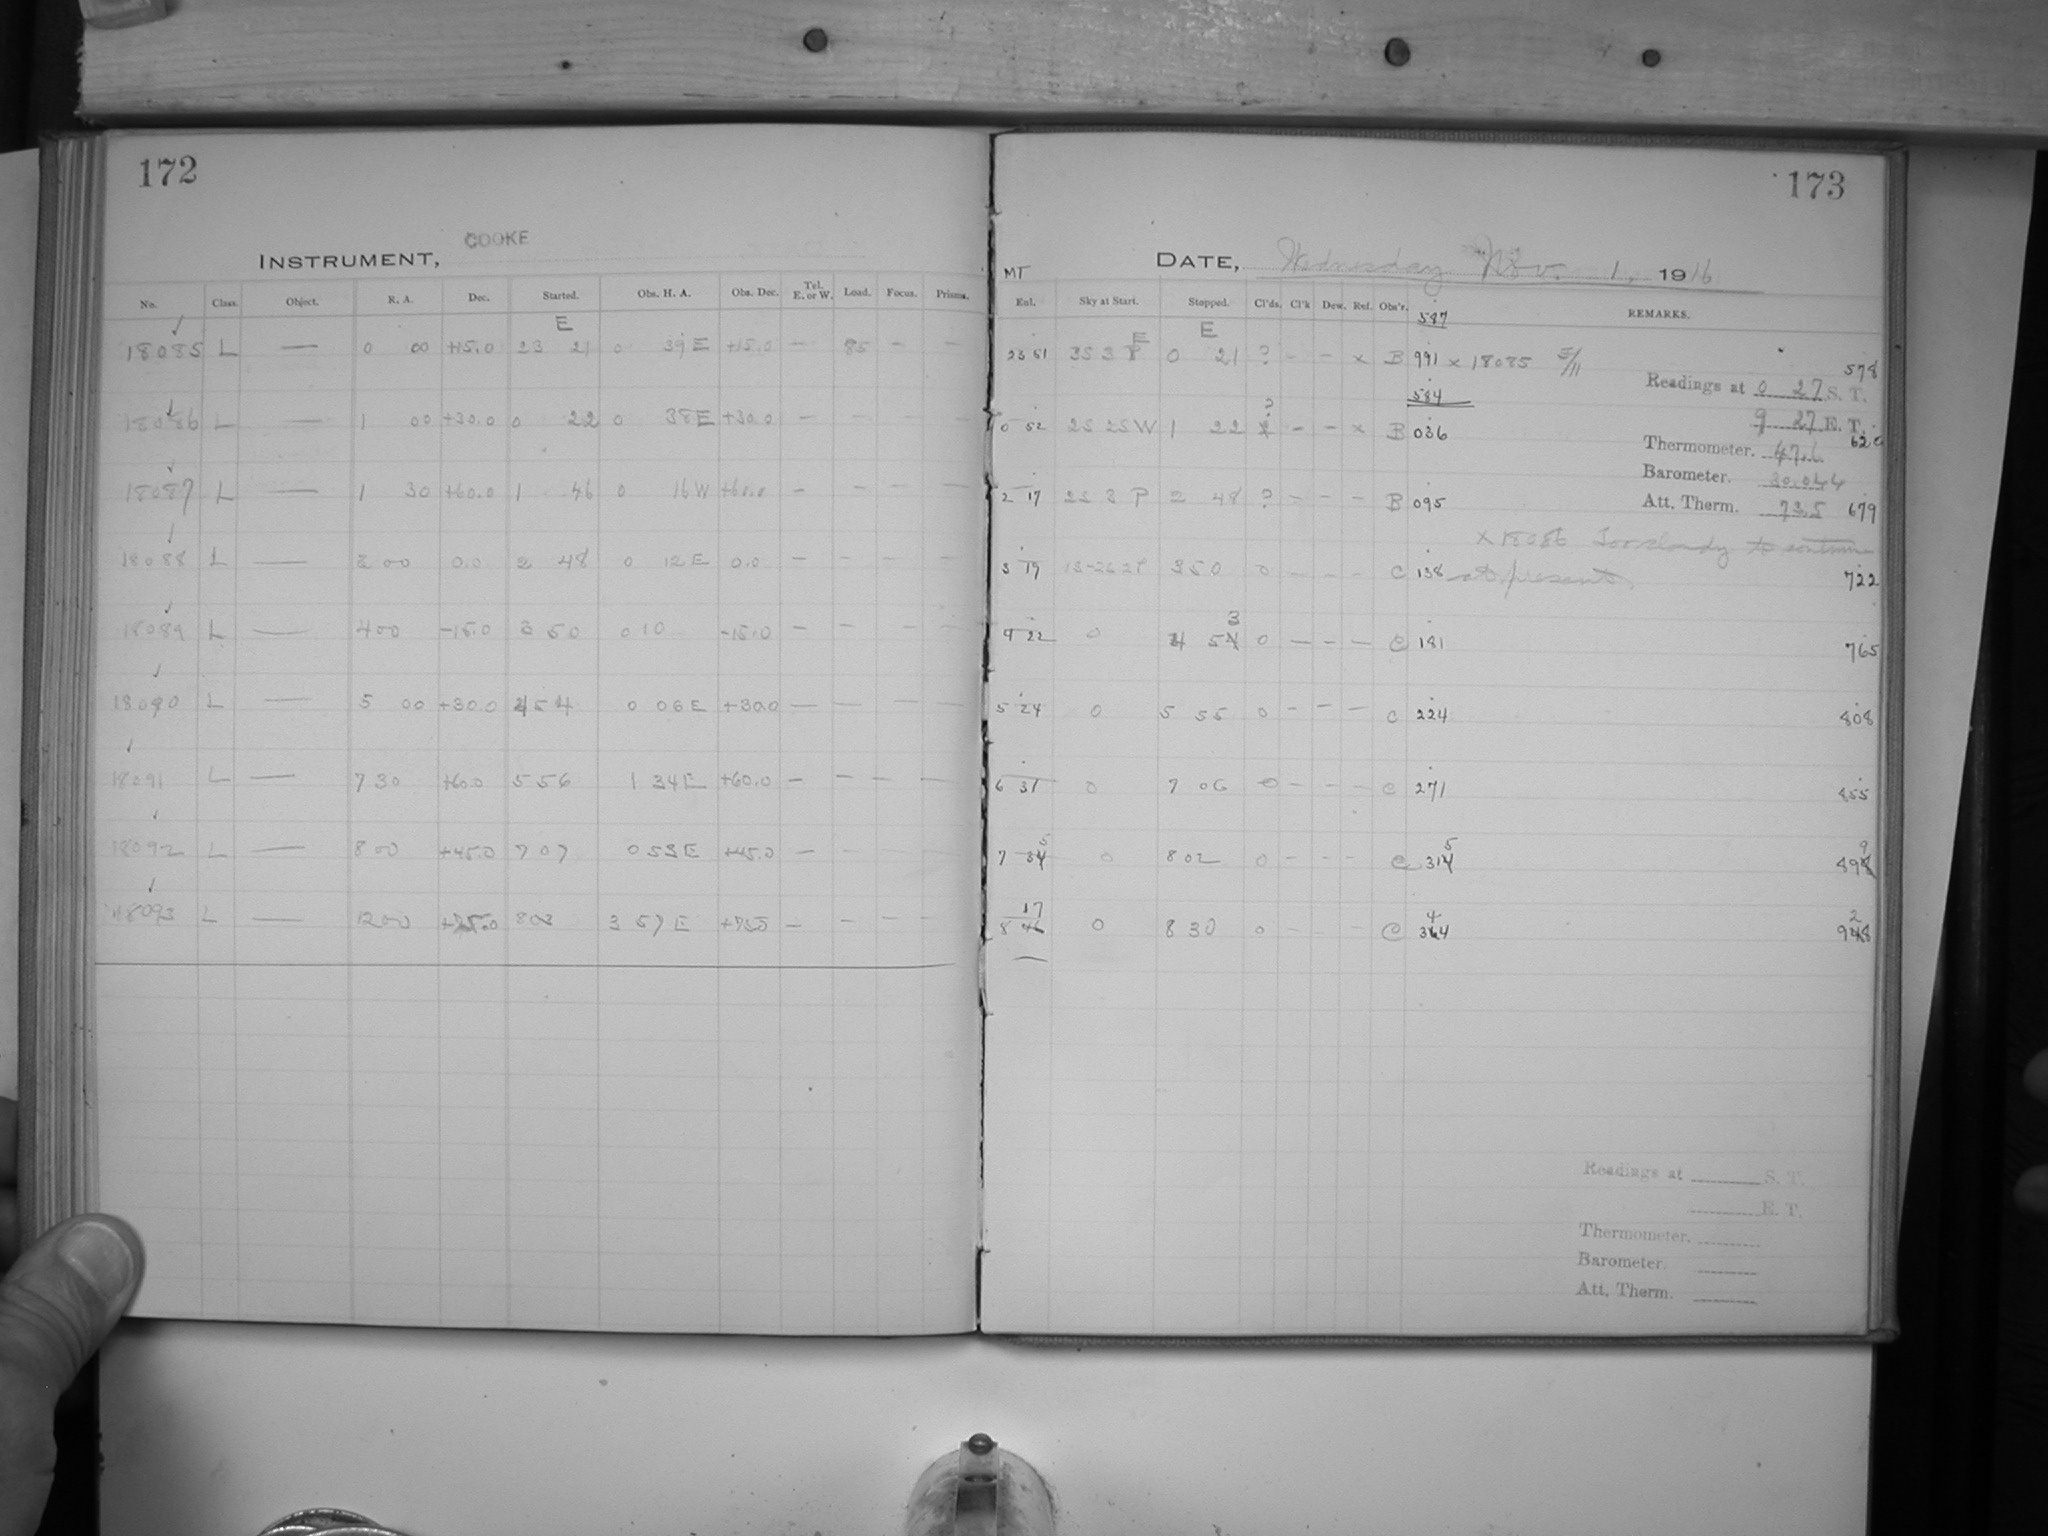 172
COOKE
INSTRUMENT,
No. Class. Object. R. A. Dec. Started. Obs. H. A. Obs. Dec. Tel. E. or W. Load. Focus. Prisms.
E
18085 L — 0 00 +15.0 23 21 0 39 E +15.0 — 85 — —
18086 L — 1 00 +30.0 0 22 0 38 E +30.0 — — — —
18087 L — 1 30 +60.0 1 46 0 16 W +60.0 — — — —
18088 L — 3 00 0.0 2 48 0 12 E 0.0 — — — —
18089 L — 4 00 -15.0 3 50 0 10 -15.0 — — — —
18090 L — 5 00 +30.0 4 54 0 06 E +30.0 — — — —
18091 L — 7 30 +60.0 5 56 1 34 E +60.0 — — — —
18092 L — 8 00 +45.0 7 07 0 53 E +45.0 — — — —
18093 L — 12 00 +75.0 8 03 3 57 E +75.0 — — — —
173
DATE, Wednesday Nov. 1, 1916
MT
Enl. Sky at Start. Stopped. Cl'ds. Cl'k Dew. Ref. Obs'r. REMARKS.
587
E E
23 51 35 3 P 0 21 ? — — x B 991 x 18085 5/11 578
584
Readings at 0 27 S. T.
9 27 E. T.
0 52 25 25 W 1 22 ? — — x B 036 620
Thermometer. 47.6
Barometer. 30.044
Att. Therm. 73.5
2 17 23 3 P 2 48 ? — — — B 095 679
x 18086 Too cloudy to continue
at present.
3 19 3 50 0 — — — C 138 722
3
4 22 0 4 54 0 — — — C 181 765
5 24 0 5 55 0 — — — C 224 808
6 31 0 7 06 0 — — — C 271 855
5 5 9
7 34 0 8 02 0 — — — C 314 898
17 4 2
8 46 0 8 30 0 — — — C 364 948
Readings at S. T.
E. T.
Thermometer.
Barometer.
Att. Therm.